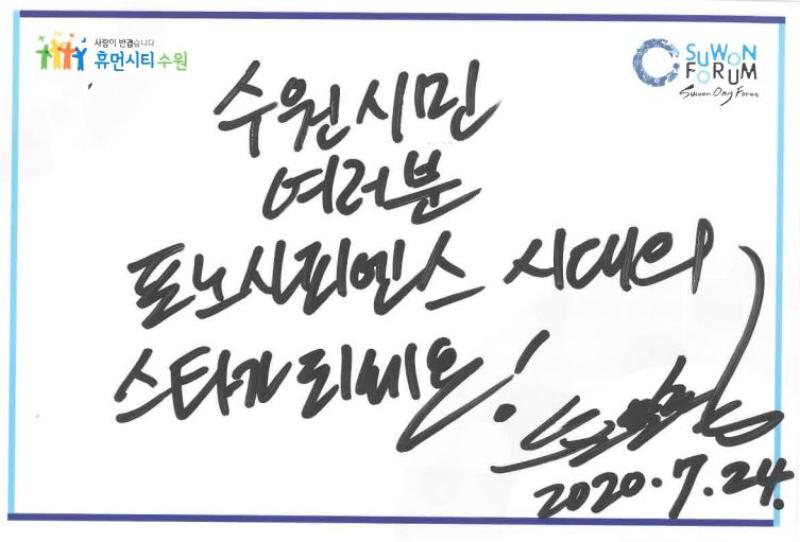 사람이 반갑습니다
휴먼시티 수원
SUWON
FORUM
Suwon Ony Forum
수원시민
여러분
포노사피엔스 시대의
스타가 되세요!
2020.7.24.